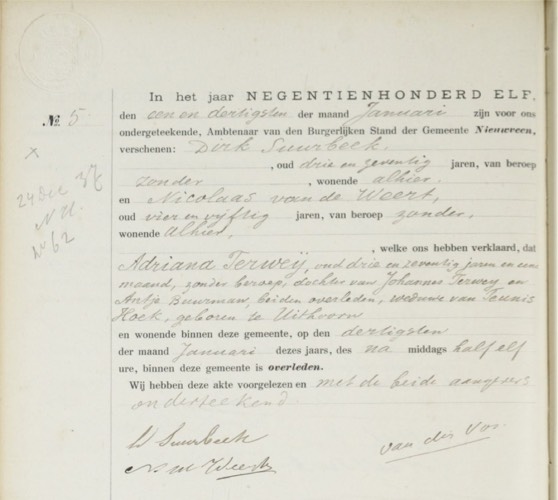 In het jaar NEGENTIENHONDERD ELF,
№ 5.
den een en dertigsten der maand Januari zijn voor ons
ondergeteekende, Ambtenaar van den Burgerlijken Stand der Gemeente Nieuwveen,
verschenen: Dirk Suurbeek,
, oud drie en zeventig jaren, van beroep
zonder, wonende alhier,
en Nicolaas van de Weert,
oud vier en vijftig jaren, van beroep zonder,
wonende alhier,
, welke ons hebben verklaard, dat
Adriana Terweij, oud drie en zeventig jaren en een
maand, zonder beroep, dochter van Johannes Terweij en
Antje Buurman, beiden overleden, weduwe van Teunis
Hoek, geboren te Uithoorn
en wonende binnen deze gemeente, op den dertigsten
der maand Januari dezes jaars, des na middags half elf
ure, binnen deze gemeente is overleden.
Wij hebben deze akte voorgelezen en met de beide aangevers
onderteekend.
D Suurbeek
van der Vos.
N. vd Weert
x
24 Dec 37
N.H.
no 62